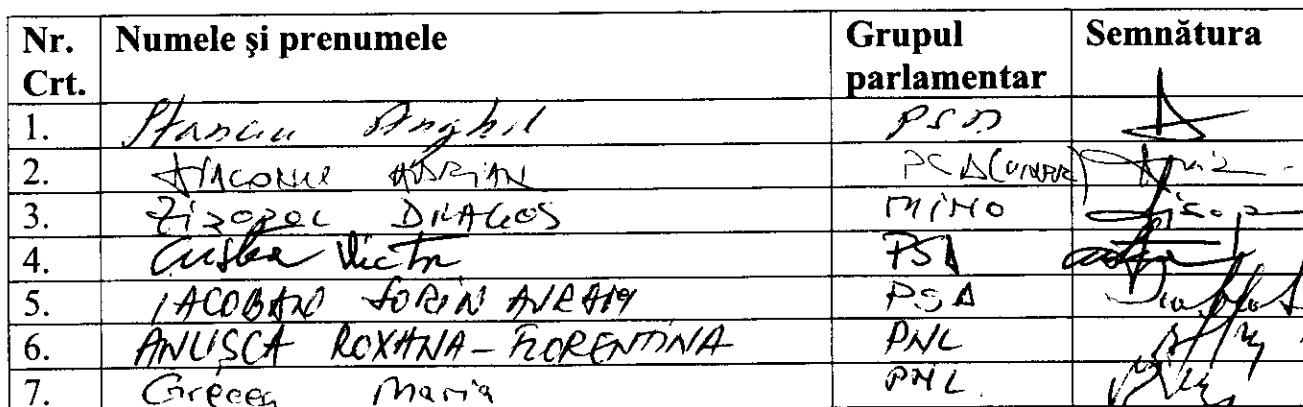 Nr. Crt. Numele şi prenumele Grupul parlamentar Semnătura
1. Stanciu Anghel PSD
2. DIACONU ADRIAN PSD (UNPR)
3. Zisopol DRAGOS MINO
4. Cristea Victor PSD
5. IACOBAN SORIN AVRAM PSD
6. ANUSCA ROXANA-FLORENTINA PNL
7. Grecea Maria PNL